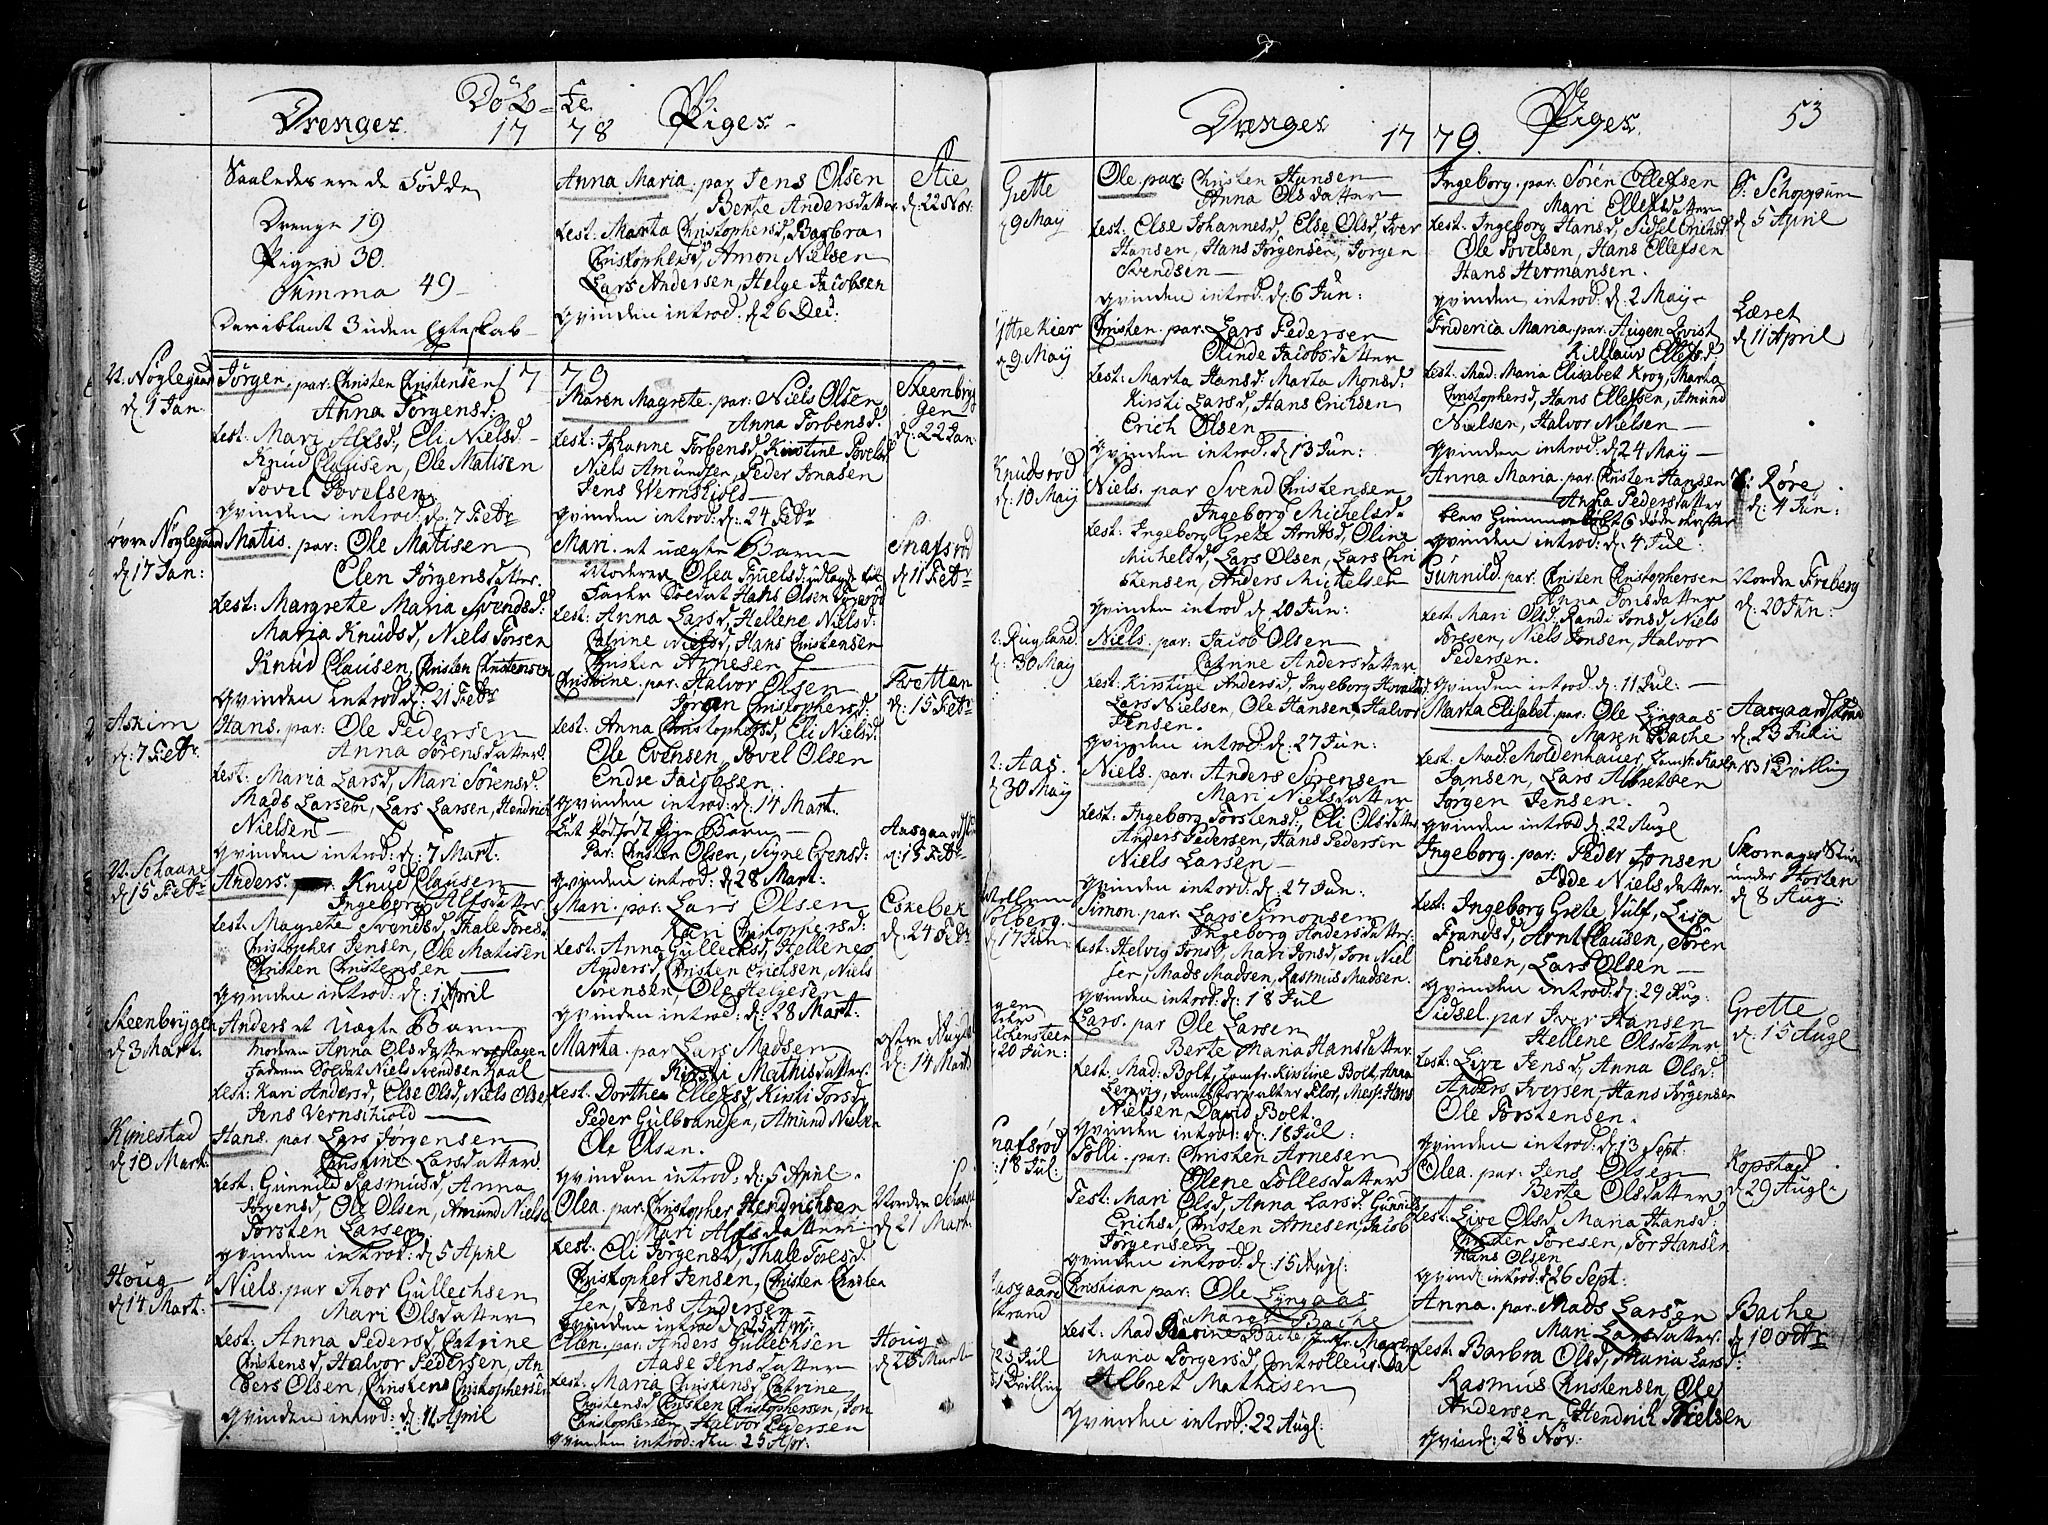 Døb-
te
Drenger. 17
78 Piger-
Saaledes ere de Fødde
Drenge 19
Piger 30.
Summa 49-
Deriblant 3 uden Egteskab-
N. Nøglegaard
d. 1 Jan.
Jørgen. par: Christen Christensen 17
Anna Jørgensd:
test: Mari Alfsd, Eli Nielsd-
Knud Clausen, Ole Matisen
Povel Povelsen
qvinden introd: d: 7 Febr
øvre Nøglegaard
d. 17 Jan:
Matis. par: Ole Matisen
Elen Jørgensdatter.
test: Margrete Maria Svendsd:
Maria Knudsd, Niels Torsen
Knud Clausen, Christen Christensen
qvinden introd: d: 21 Febr
Askim
d: 7 Febr.
Hans. par: Ole Pedersen
Anna Sørensdatter
test: Maria Larsd, Mari Sørensd.
Mads Larsen, Lars Larsen, Hendrich
Nielsen-
qvinden introd: d: 7 Mart.
N. Schaane
d. 15 Febr
Anders. Knud Clausen
Ingeborg Alfsdatter
test: Magrete Svendsd, Thale Toresd
Christopher Jensen, Ole Matisen
Christen Christensen
qvinden introd: d: 1 April
Steenbrygen
d. 3 Mart.
Anders et Uægte Barn
Moderen Anna Olsdatter
Faderen Soldat Niels Svendsen
test: Kari Andersd, Else Olsd, Niels Olsen
Jens Vernschiold
Kimestad
d. 10 Mart.
Hans. par Lars Jørgensen
Christine Larsdatter
test: Gunnild Rasmusd, Anna
Jørgensd, Ole Olsen, Amund Nielsen
Torsten Larsen
qvinden introd: d 5 April
Houg
d. 14 Mart:
Niels. par Thor Gullechsen
Mari Olsdatter
test: Anna Pedersd, Catrine
Christensd, Halvor Pedersen, An
ders Olsen, Christen Christophersen
qvinden introd: d: 11 April
Anna Maria. par Jens Olsen
Berte Andersdatter
test: Marta Christophersd, Barbra
Christophersd, Amon Nielsen
Lars Andersen, Helge Jacobsen
qvinden introd: d 26 Dec:
Stie
d: 22 Nov:
79
Maren Magrete. par: Niels Olsen
Anna Torbensd:
test: Johanne Torbensd, Kirstine Povelsd
Niels Amundsen, Peder Jonasen
Jens Wernskiold-
qvinden introd: d: 24 Febr
Steenbryg
gen
d: 22 Jan:
Mari. et uægte Barn
Moderen Olea Truelsd: udlagde til
Fader Soldat Hans Olsen
test: Anna Larsd, Hellene Nielsd:
Catrine Nielsd, Hans Christensen
Christen Arnesen
Snafsrød
d: 11 Febr
Christine. par. Halvor Olsen
Jøran Christophersd.
test: Anna Christophersd, Eli Nielsd.
Ole Evensen, Povel Olsen
Endre Jacobsen
qvinden introd: d: 14 Mart.
Tvetten
d: 15 Febr
Et Dødfødt Pige Barn-
Par: Christen Olsen, Signe Evensd:
qvinden introd: d 28 Mart:
d: 15 Febr
Mari. par. Lars Olsen
Karen Christophersd:
test: Anna Gullechsd, Hellene
Andersd, Christen Erichsen, Niels
Sørensen, Ole Helgesen
qvinden introd: d: 28 Mart:
Eskebek
d: 24 Febr
Marta. par Lars Madsen
Kirsti Mathisdatter.
test: Dorthe Ellefsd, Kirsti Torsd,
Peder Gulbrandsen, Amund Nielsen
Ole Olsen.
qvinden introd: d: 5 April.
d: 14 Mart
Olea. par Christopher Hendrichsen
Mari Alfsdatter
test: Eli Jørgensd, Thale Toresd.
Christopher Jensen, Christen Christen
sen, Jens Andersen-
qvinden introd d 25 Apr:
Nordre Schaane
d. 21 Mart.
Elen. par: Anders Gullechsen
Aase Jensdatter
test: Maria Christensd, Catrine
Christensd, Christen Christophersen, Jon
Christophersen, Halvor Pedersen
qvinden introd: den 25 Apr.
Houg
d 26 Mart
53
Drenger 17
79. Piger.
Grette
9 Maij
Ole par Christen Hansen
Anna Olsdatter
test: Else Johannesd, Else Olsd, Iver
Hansen, Hans Jørgensen, Jørgen
Svendsen-
qvinden introd: d: 6 Jun:
Yttre Kier
9 Maij
Christen. par. Lars Pedersen
Olinde Jacobsdatter
test: Marta Hansd: Marta Monsd:
Kirsti Larsd, Hans Erichsen
Erich Olsen
qvinden introd: d 13 Jun:
Knudsrød
d: 10 Maij
Niels. par Svend Christensen
Ingeborg Michelsd.
test: Ingeborg Grete Arntsd, Oline
Michelsd, Lars Olsen, Lars Chri
stensen, Anders Michelsen
qvinden introd d 20 Jun:
Rugland
30 Maij
Niels. par: Jacob Olsen
Catrine Andersdatter
test: Kirstine Andersd, Ingeborg
Lars Nielsen, Ole Hansen, Halvor
Jensen.
qvinden introd: d: 27 Jun:
Aas
30 Maij
Niels. par: Anders Sørensen
Mari Nielsdatter
test: Ingeborg Torstensd:, Eli Olsdatter
Anders Pedersen, Hans Pedersen
Niels Larsen-
qvinden introd: d. 27 Jun:
Solberg
17 Jun
Simon. par: Lars Simonsen
Ingeborg Andersdatter
test: Helvig Jonsd, Mari Jonsd, Jon Niel
sen, Mads Madsen, Rasmus Madsen.
qvinden introd: d: 18 Jul
20 Jun:
Lars. par Ole Larsen
Berte Maria Hansdatter
test: Mad: Bolt, Jomfr: Kirstine Bolt, Anna
Flor, Mess: Hans
Nielsen, David Bolt.
qvinden introd: d: 18 Jul:
Snafsrød
18 Jul:
Tolli. par: Christen Arnesen
Olene Tollesdatter
Test: Mari Olsd, Anna Larsd, Gunnild
Erichsd, Christen Arnesen, Jacob
Jørgensen
qvinden introd: d: 15 Augl:
Aasgaard
strand
23 Jul
Christian par: Ole Lyngaas
Maren Bache
test: Mad Bache, Jomfr Maren
Maria Torgersd, Controlleur Dal
Albret Mathisen
qvinden introd: 22 Augl:
Ingeborg. par. Søren Ellefsen
Mari Ellefsdatter
test: Ingeborg Hansd, Sidsel Erichsd
Ole Povelsen, Hans Ellefsen
Hans Hermansen.
qvinden introd: d: 2 May-
S: Schoppum
d 5 April
Friderica Maria. par. Augen Qvist
Ellefsd
test: Mad: Maria Elisabet Krog, Marta
Christophersd, Hans Ellefsen, Amund
Nielsen, Halvor Nielsen
qvinden introd: d 24 May-
Læret
d 11 April
Anna Maria. par. Christen Hansen
Anna Pedersdatter
blev
qvinden introd: d: 4 Jul:
Røre
d: 4 Jun:
Gunnild. par: Christen Christophersen
Anna Jonsdatter
test: Mari Olsd, Randi Jonsd, Niels
Toresen, Niels Jensen, Halvor
Pedersen.
qvinden introd: d: 11 Jul:
Nordre Freberg
d: 20 Jun:
Marta Elisabet. par: Ole Lyngaas
Maren Bache
test: Mad. Moldenhauer, Jomfr: Karen
Jansen, Lars Albretsen
Jørgen Jensen.
qvinden introd: d 22 Augl
Aasgaardstrand
d. 23 Julii
Tvilling
Ingeborg. par: Peder Jonsen
Edde Nielsdatter.
test: Ingeborg Grete Vulf, Lisa
Frandsd, Arnt Clausen, Søren
Erichsen, Lars Olsen-
qvinden introd: d: 29 Aug:
Skomager
under Horten
d 8 Aug:
Sidsel. par Iver Hansen
Hellene Olsdatter
test: Live Jensd, Anna Olsd:
Anders Iversen, Hans Jørgensen
Ole Torstensen.
qvinden introd: d 13 Sept:
Grette
d. 15 Augl
Olea. par: Jens Olsen
Berte Olsdatter
test: Live Olsd, Maria Hansd:
Christen Toresen, Tor Hansen
Hans Olsen
qvind: introd: d 26 Sept:
Kopstad
d 29 Augl:
Anna. par. Mads Larsen
Mari Larsdatter.
test: Barbra Olsd, Maria Larsd:
Rasmus Christensen, Ole
Andersen, Hendrich Nielsen
qvind: 28 Nov:
Bache
d. 10 Octr